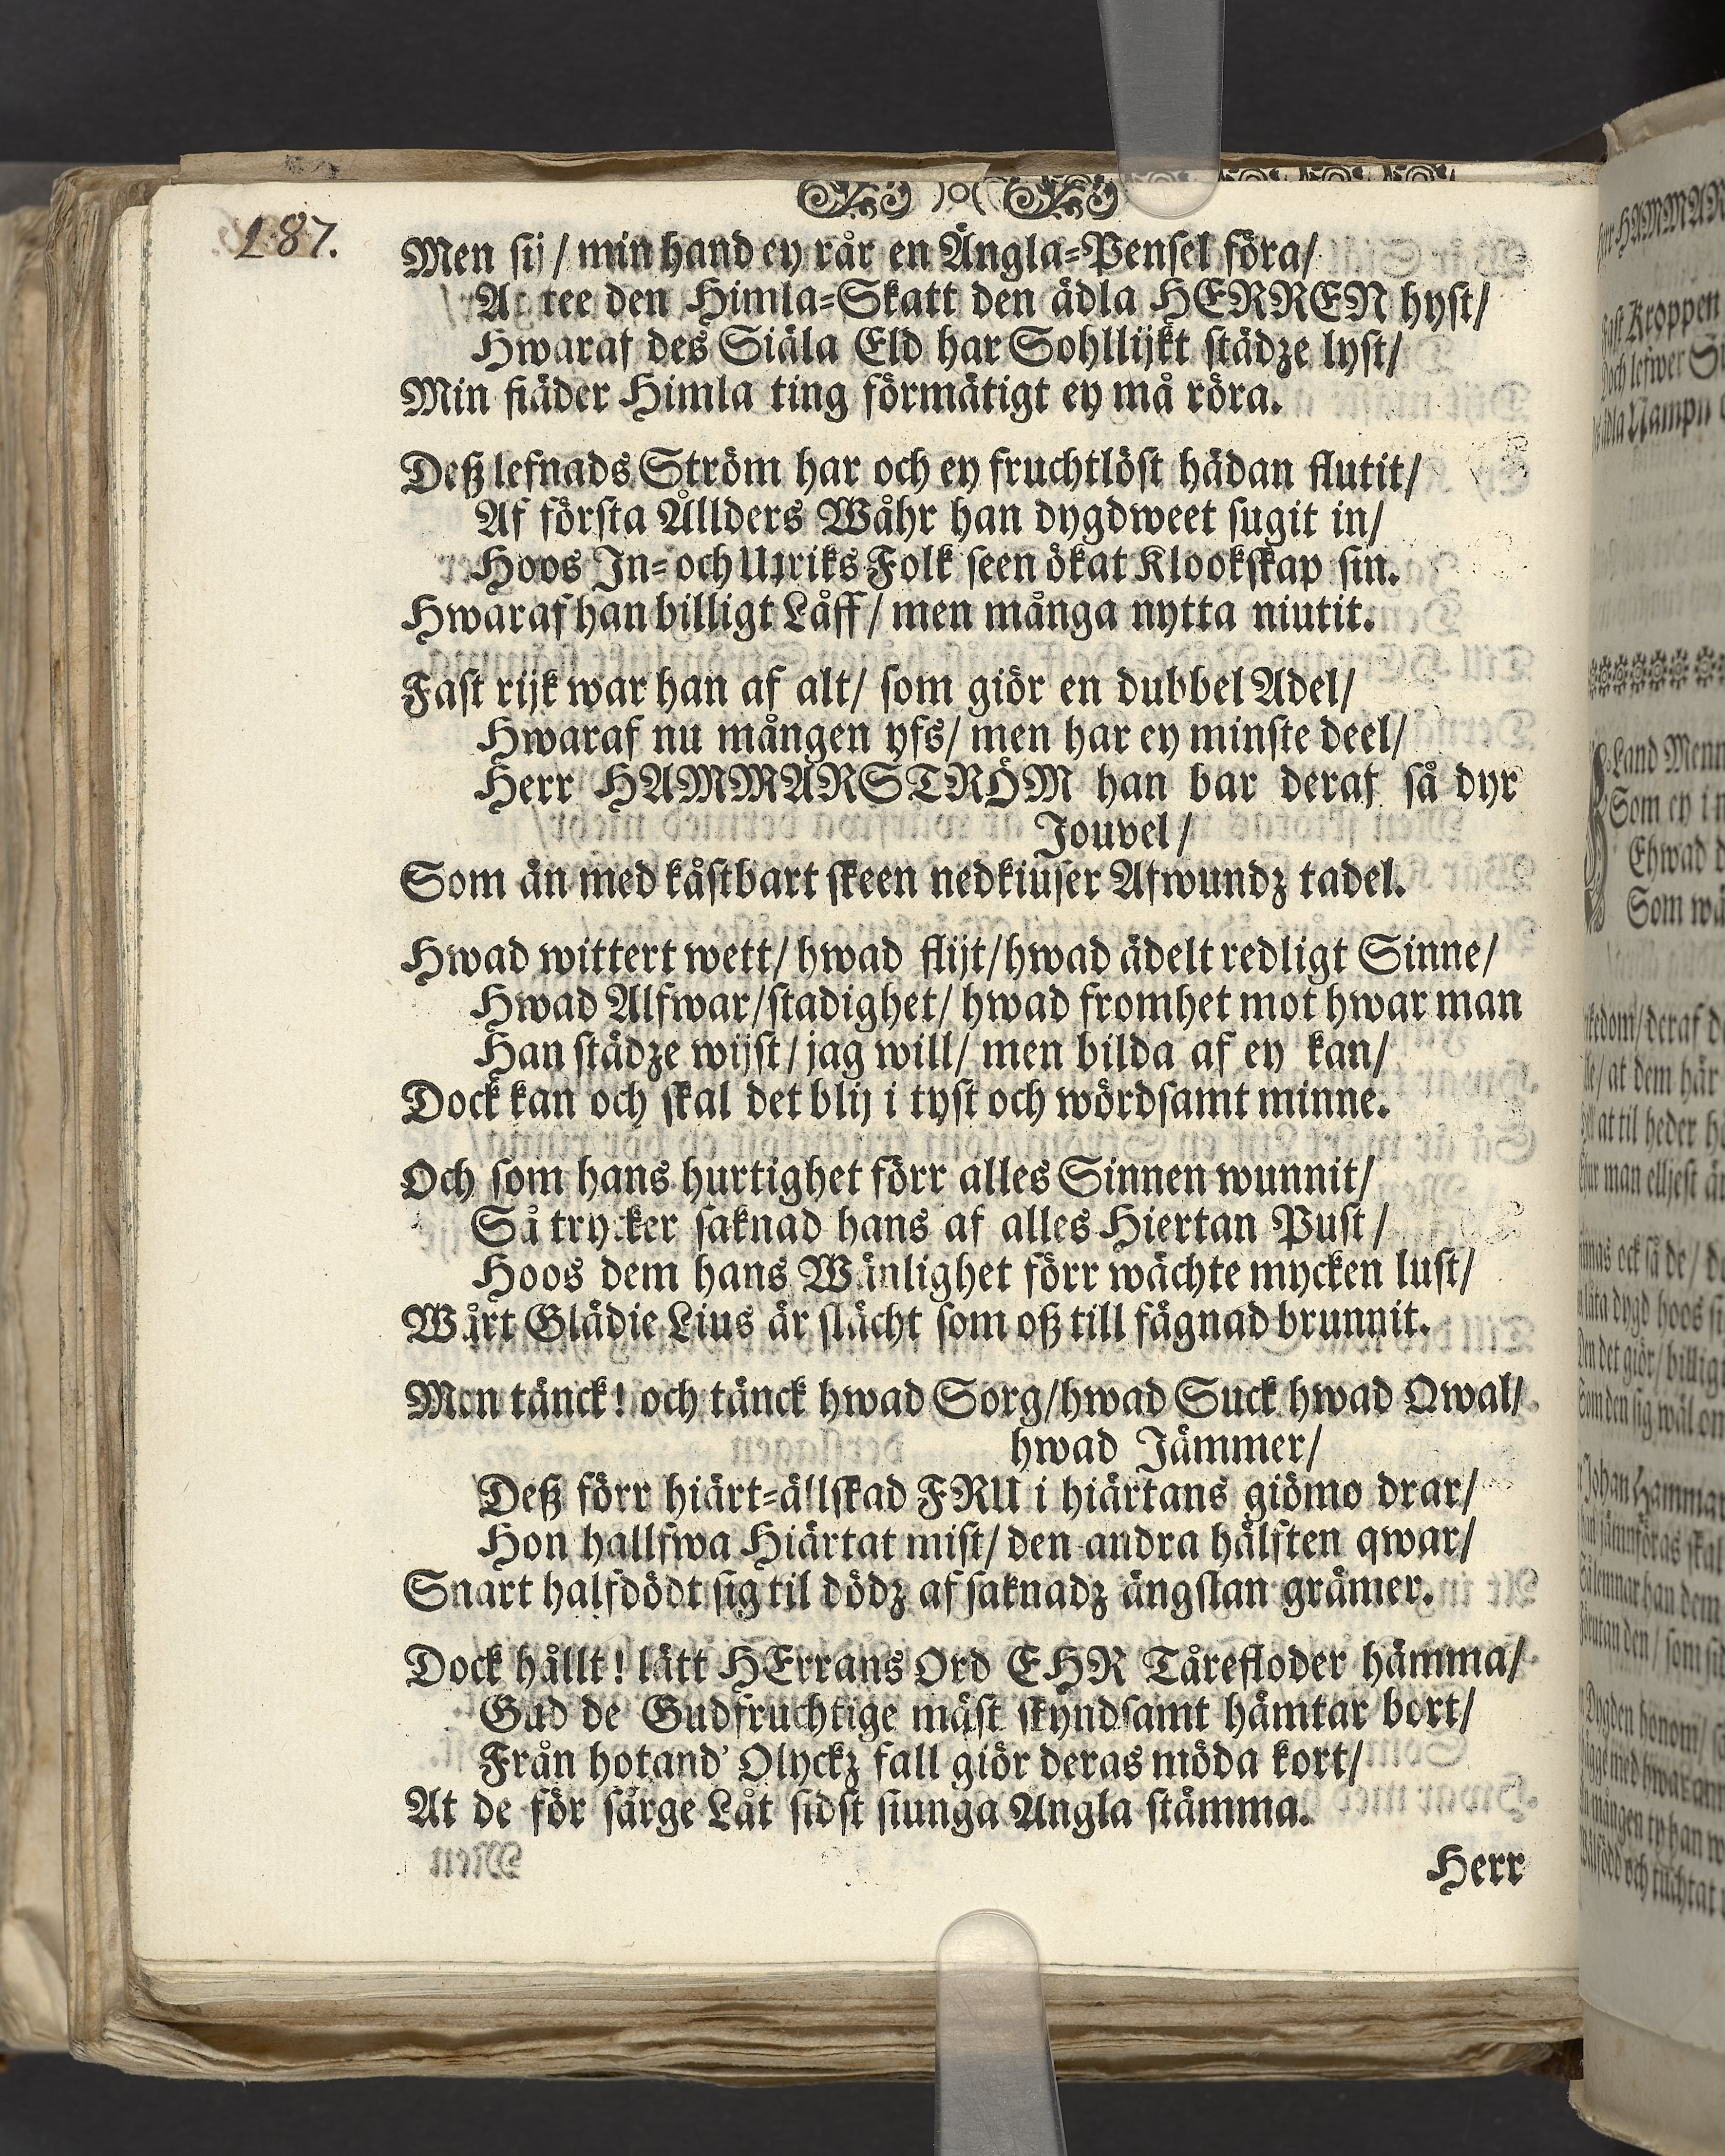 187.
)o(
Men sij / min hand ey rår en Ängla-Pensel föra/
At tee den Himla-Skatt den ädla HERREN hyst/
Hwaraf des Siäla Eld har Sohllijkt städze lyst/
Min fiäder Himla ting förmätigt ey må röra.
Deß lefnads Ström har och ey fruchtlöst hädan flutit/
Af första Ållders Wåhr han dygdweet sugit in/
Hoos In- och Utriks Folk seen ökat Klookskap sin.
Hwaraf han billigt Låff/ men många nytta niutit.
Fast rijk war han af alt/ som giör en dubbel Adel/
Hwaraf nu mången yfs/ men har ey minste deel/
Herr HAMMARSTRÖM han bar deraf så dyr
Jouvel/
Som än med kåstbart skeen nedkiuser Afwundz tadel.
Hwad wittert wett/ hwad flijt/ hwad ädelt redligt Sinne/
Hwad Alfwar/stadighet/ hwad fromhet mot hwar man
Han städze wijst/ jag will/ men bilda af ey kan/
Dock kan och skal det blij i tyst och wördsamt minne.
Och som hans hurtighet förr alles Sinnen wunnit/
Så trycker saknad hans af alles Hiertan Pust/
Hoos dem hans Wänlighet förr wächte mycken lust/
Wårt Glädie Lius är slächt som oß till fägnad brunnit.
Men tänck! och tänck hwad Sorg/hwad Suck hwad Qwal/
hwad Jämmer/
Deß förr hiärt-ällskad FRU i hiärtans giömo drar/
Hon hallfwa Hiärtat mist/ den andra hälften qwar/
Snart halfdödt sig til dödz af saknadz ängslan grämer.
Dock hållt! lätt HErrans Ord EHR Tårefloder hämma/
Gud de Gudfruchtige mäst skyndsamt hämtar bort/
Från hotand' Olyckz fall giör deras möda kort/
At de för särge Låt sidst siunga Ängla stämma.
Herr